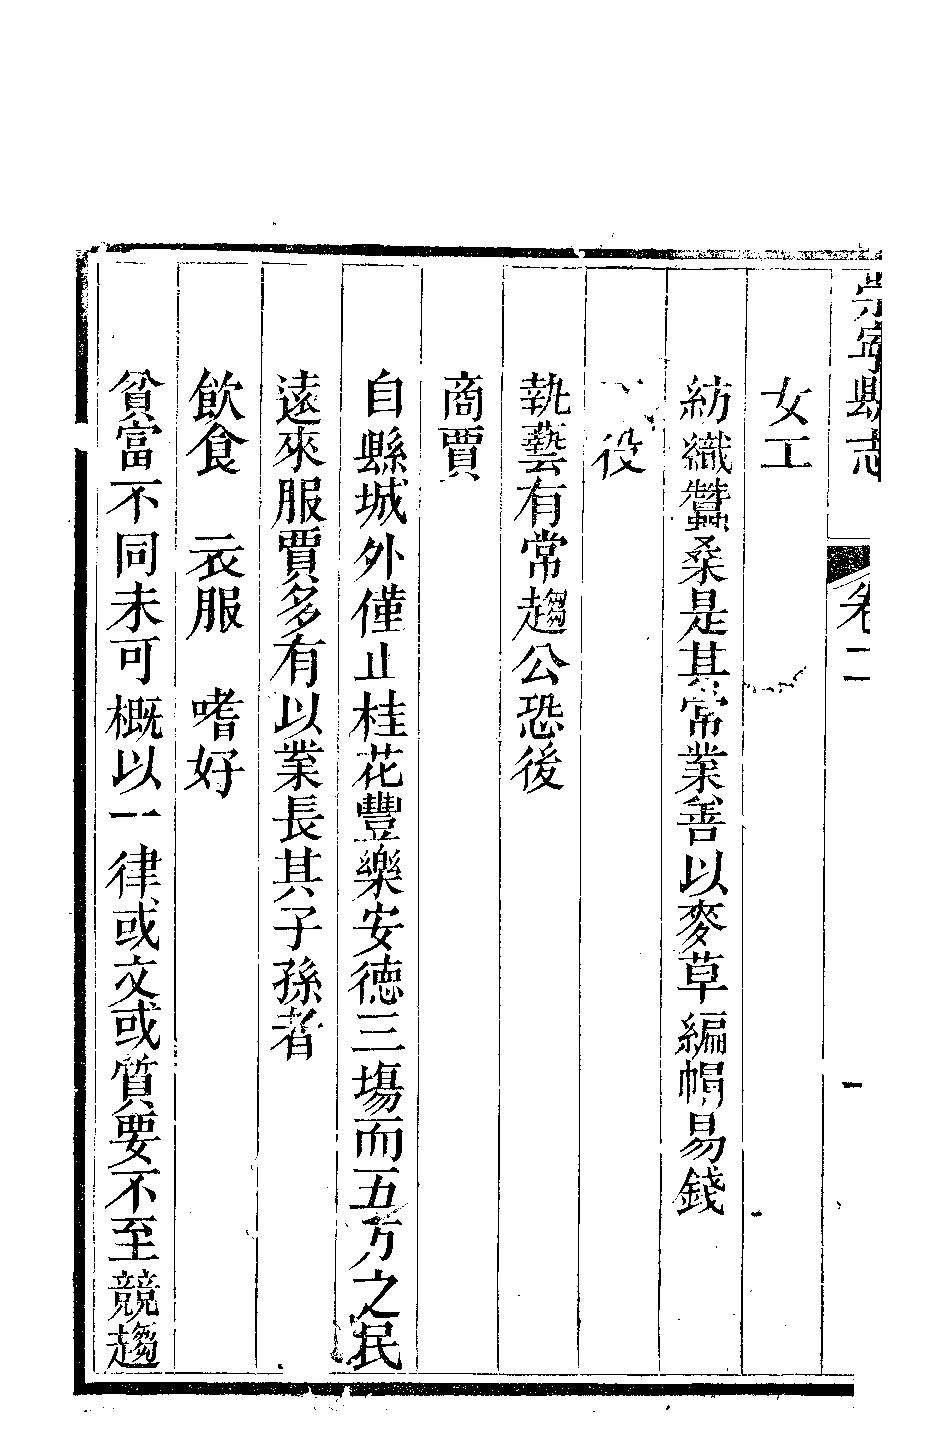 崇寧縣志 卷二
女工
紡織蠶桑是其常業善以麥草編帽易錢
役
執藝有常趨公恐後
商賈
自縣城外僅止桂花豐樂安德三塲而五方之民
遠來服賈多有以業長其子孫者
飲食 衣服 嗜好
貧富不同未可概以一律或文或質要不至競趨